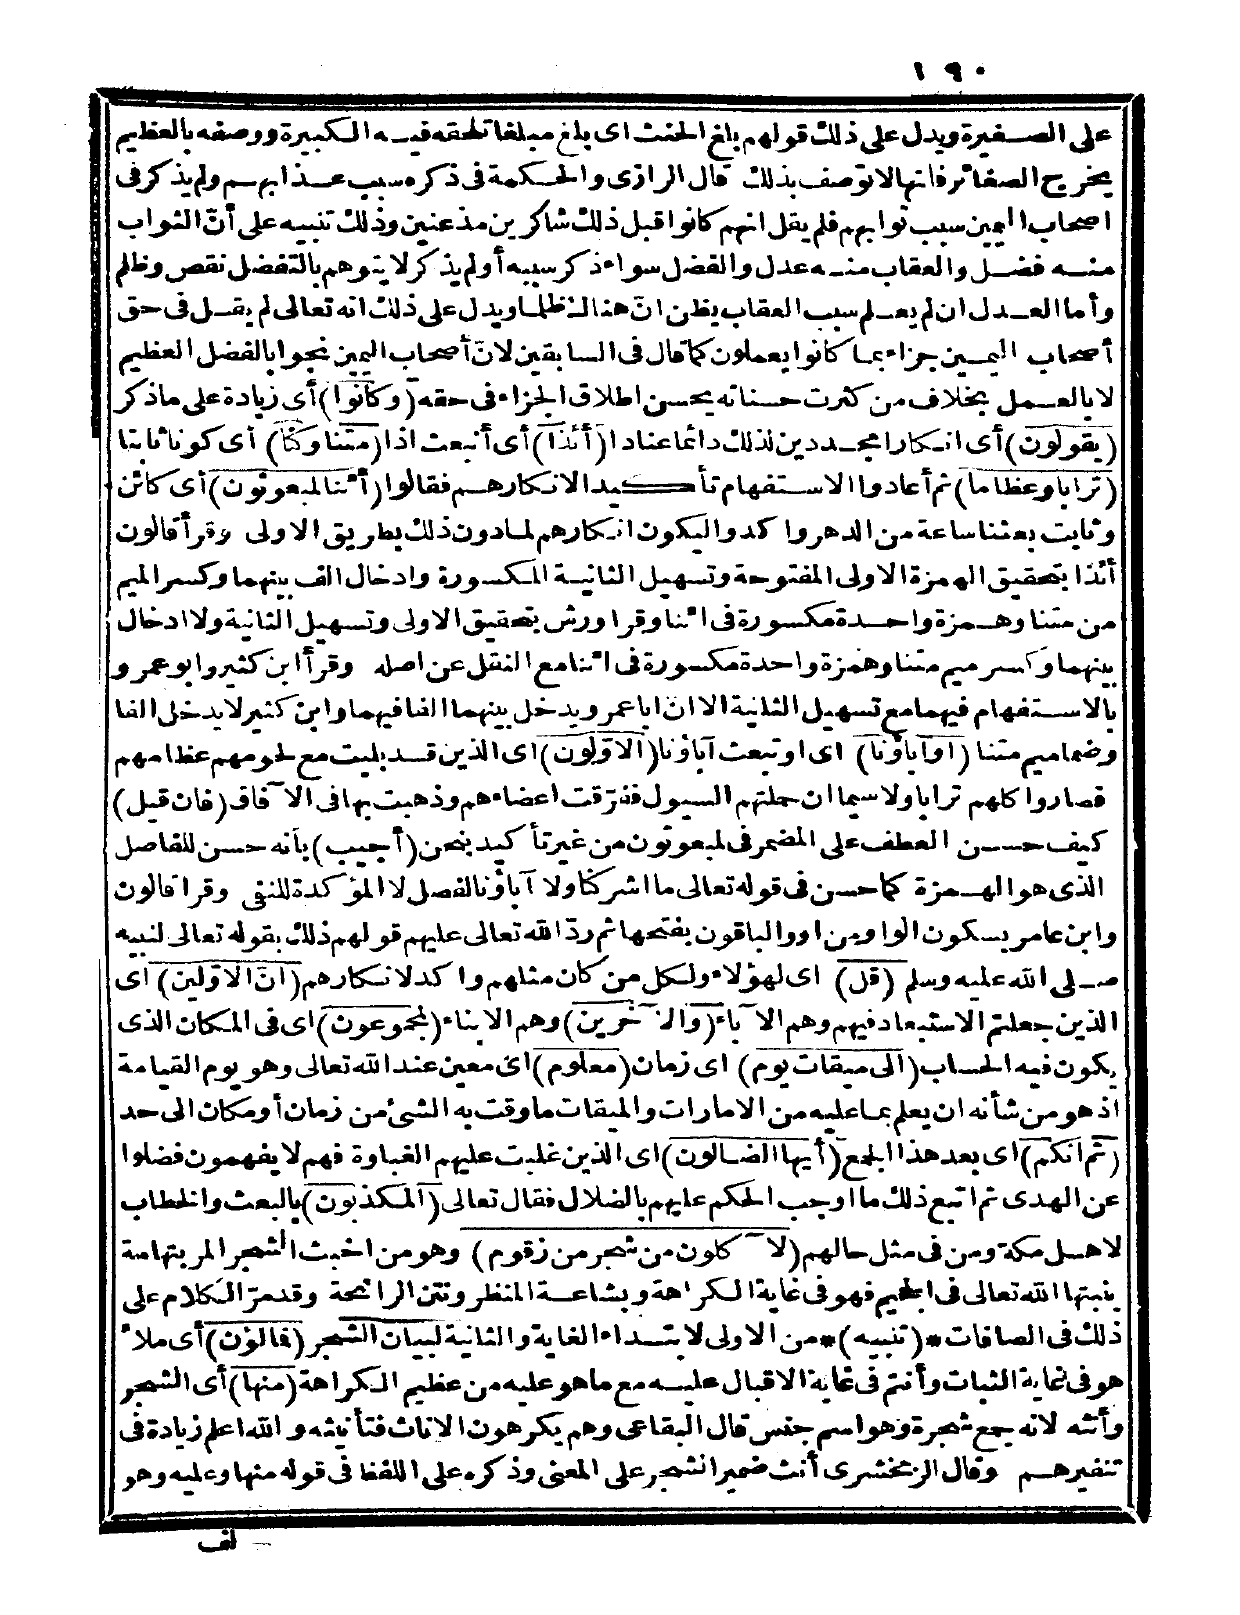 ١٩٠
على الصغيرة ويدل على ذلك قولهم بلغ الحنث اى بلغ مبلغا تلحقه فيه الكبيرة ووصفه بالعظيم
يخرج الصغائر فانها لا توصف بذلك قال الرازى والحكمة فى ذكره سبب عذابهم ولم يذكر فى
اصحاب اليمين سبب ثوابهم فلم يقل انهم كانوا قبل ذلك شاكرين مذعنين وذلك تنبيه على أنّ الثواب
منه فضل والعقاب منه عدل والفضل سواء ذكر سببه أولم يذكر لا يتوهم بالتفضل نقص وظلم
وأما العدل ان لم يعلم سبب العقاب يظن انّ هناك ظلما ويدل على ذلك انه تعالى لم يقل فى حق
أصحاب اليمين جزاء بما كانوا يعملون كما قال فى السابقين لانّ أصحاب اليمين نجوا بالفضل العظيم
لا بالعمل بخلاف من كثرت حسناته يحسن اطلاق الجزاء فى حقه (وكانوا) أى زيادة على ما ذكر
(يقولون) أى انكارا مجددين لذلك دائما عنادا (أئذا) أى أنبعث اذا (متنا وكنا) أى كونا ثابتا
(ترابا وعظاما) ثم أعادوا الاستفهام تأكيدا لانكارهم فقالوا (أئنا لمبعوثون) أى كائن
وثابت بعثنا ساعة من الدهر واكدوا ليكون انكارهم لمادون ذلك بطريق الاولى وقرأ قالون
أئذا بتحقيق الهمزة الاولى المفتوحة وتسهيل الثانية المكسورة وادخال الف بينهما وكسر الميم
من متنا وهمزة واحدة مكسورة فى ائنا وقرا ورش بتحقيق الاولى وتسهيل الثانية ولا ادخال
بينهما وكسر ميم متنا وهمزة واحدة مكسورة فى ائنا مع النقل عن اصله وقرأ ابن كثير وابو عمرو
بالاستفهام فيهما مع تسهيل الثانية الا انّ ابا عمرو يدخل بينهما الفا فيهما وابن كثير لا يدخل الفا
وضما ميم متنا (اوآباؤنا) اى او تبعث آباؤنا (الاوّلون) اى الذين قد بليت مع لحومهم عظامهم
فصاروا كلهم ترابا ولا سيما ان حملتهم السيول ففرّقت اعضاءهم وذهبت بها فى الآفاق (فان قيل)
كيف حسن العطف على المضمر فى لمبعوثون من غير تأكيد بنحن (أجيب) بأنه حسن للفاصل
الذى هو الهمزة كما حسن فى قوله تعالى ما اشركنا ولا آباؤنا لفصل لا المؤكدة للنفى وقرا قالون
وابن عامر بسكون الواو من او والباقون بفتحها ثم ردّ الله تعالى عليهم قولهم ذلك بقوله تعالى لنبيه
صلى الله عليه وسلم (قل) اى لهؤلاء ولكل من كان مثلهم واكد لانكارهم (انّ الاوّلين) اى
الذين جعلتم الاستبعاد فيهم وهم الآباء (والآخرين) وهم الابناء (لمجموعون) اى فى المكان الذى
يكون فيه الحساب (الى ميقات يوم) اى زمان (معلوم) اى معين عند الله تعالى وهو يوم القيامة
اذ هو من شأنه ان يعلم بما عليه من الامارات والميقات ما وقت به الشئ من زمان أو مكان الى حد
(ثم انكم) اى بعد هذا الجمع (أيها الضالون) اى الذين غلبت عليهم الغباوة فهم لا يفهمون فضلوا
عن الهدى ثم اتبع ذلك ما اوجب الحكم عليهم بالضلال فقال تعالى (المكذبون) بالبعث والخطاب
لاهل مكة ومن فى مثل حالهم (لآكلون من شجر من زقوم) وهو من اخبث الشجر المر بتهامة
ينبتها الله تعالى فى الجحيم فهو فى غاية الكراهة وبشاعة المنظر ونتن الرائحة وقد مرّ الكلام على
ذلك فى الصافات *(تنبيه)* من الاولى لابتداء الغاية والثانية لبيان الشجر (فمالؤن) أى ملأ
هو فى غاية الثبات وأنتم فى غاية الاقبال عليه مع ما هو عليه من عظيم الكراهة (منها) أى الشجر
وأنثه لانه جمع شجرة وهو اسم جنس قال البقاعى وهم يكرهون الاناث فتأنيثه والله اعلم زيادة فى
تنفيرهم وقال الزمخشرى أنث ضمير الشجر على المعنى وذكره على اللفظ فى قوله منها وعليه وهو
لف